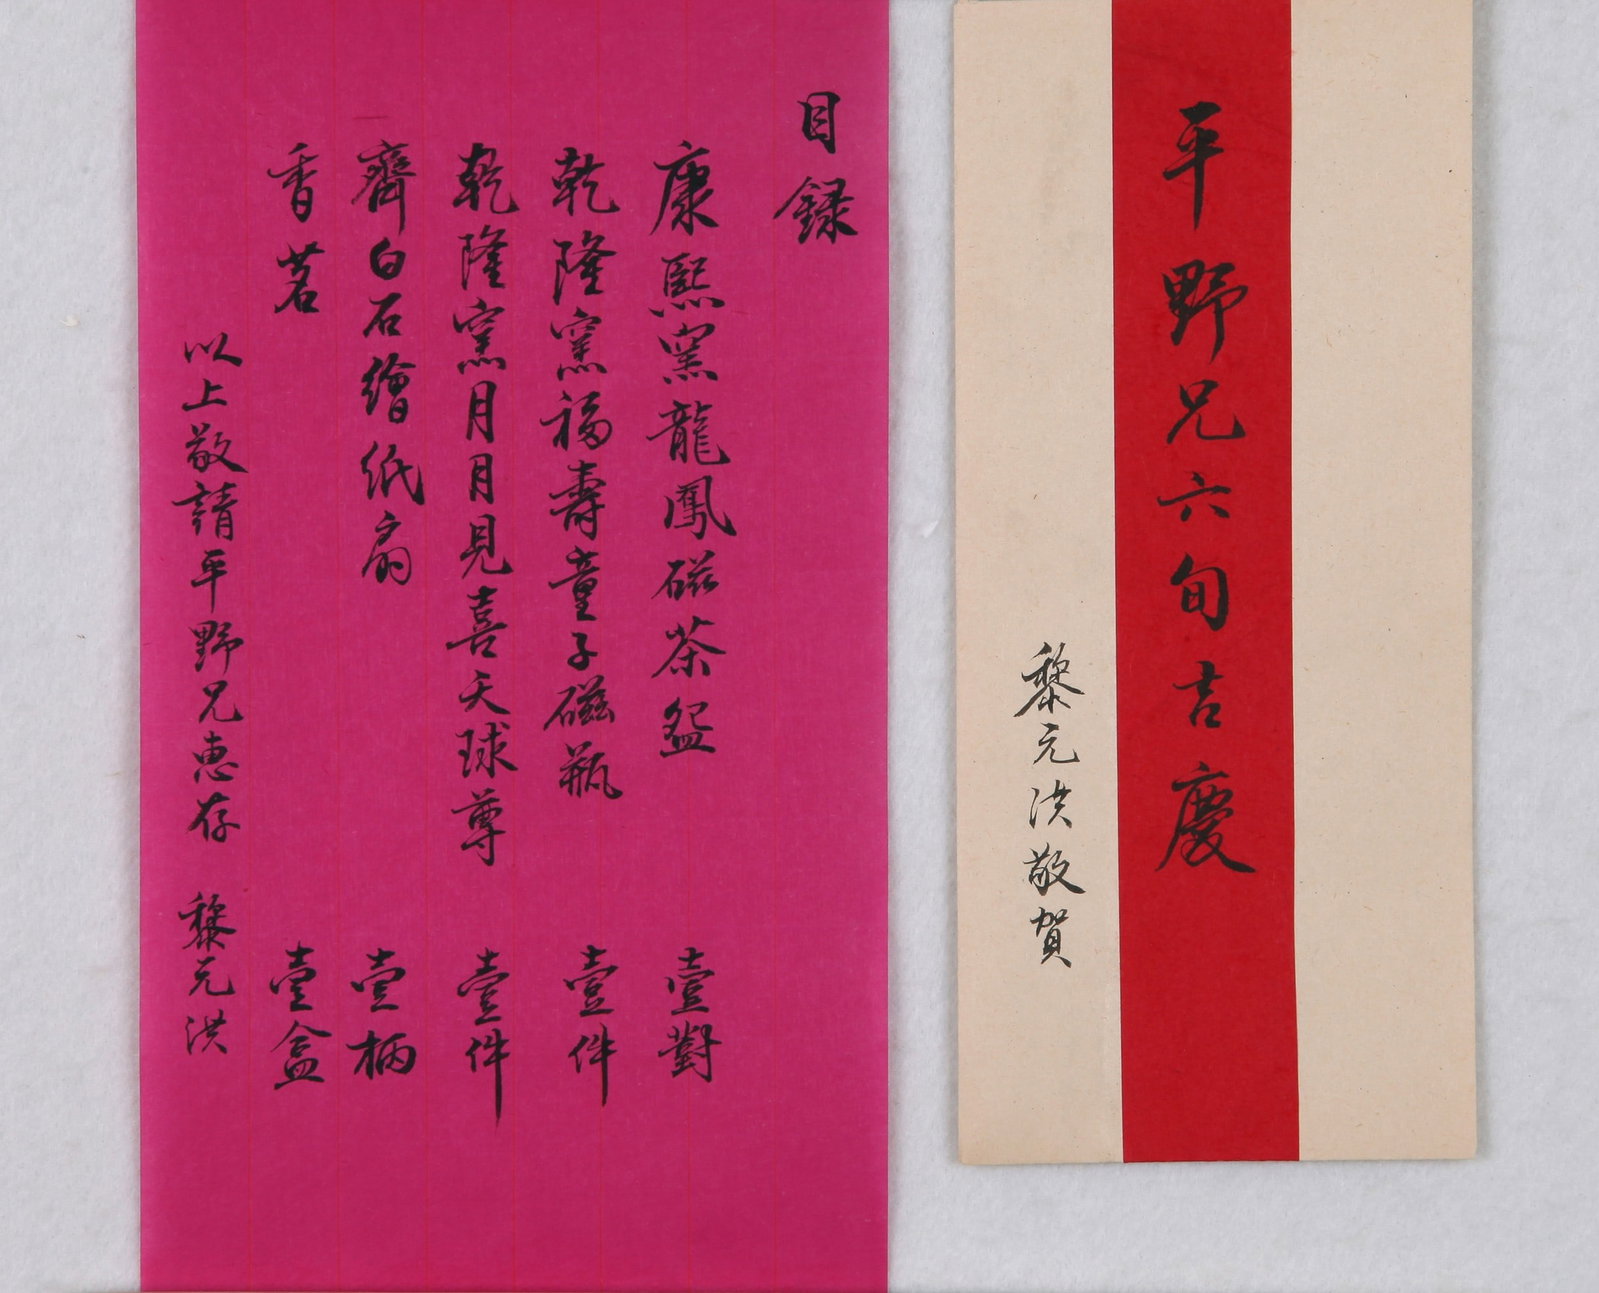 平野兄六旬吉慶
黎元洪敬賀
目録
康熙窯龍鳳磁茶盌 壹對
乾隆窯福壽童子磁瓶 壹件
乾隆窯月月見喜天球尊 壹件
齊白石繪纸扇 壹柄
香茗 壹盒
以上敬請平野兄惠存 黎元洪